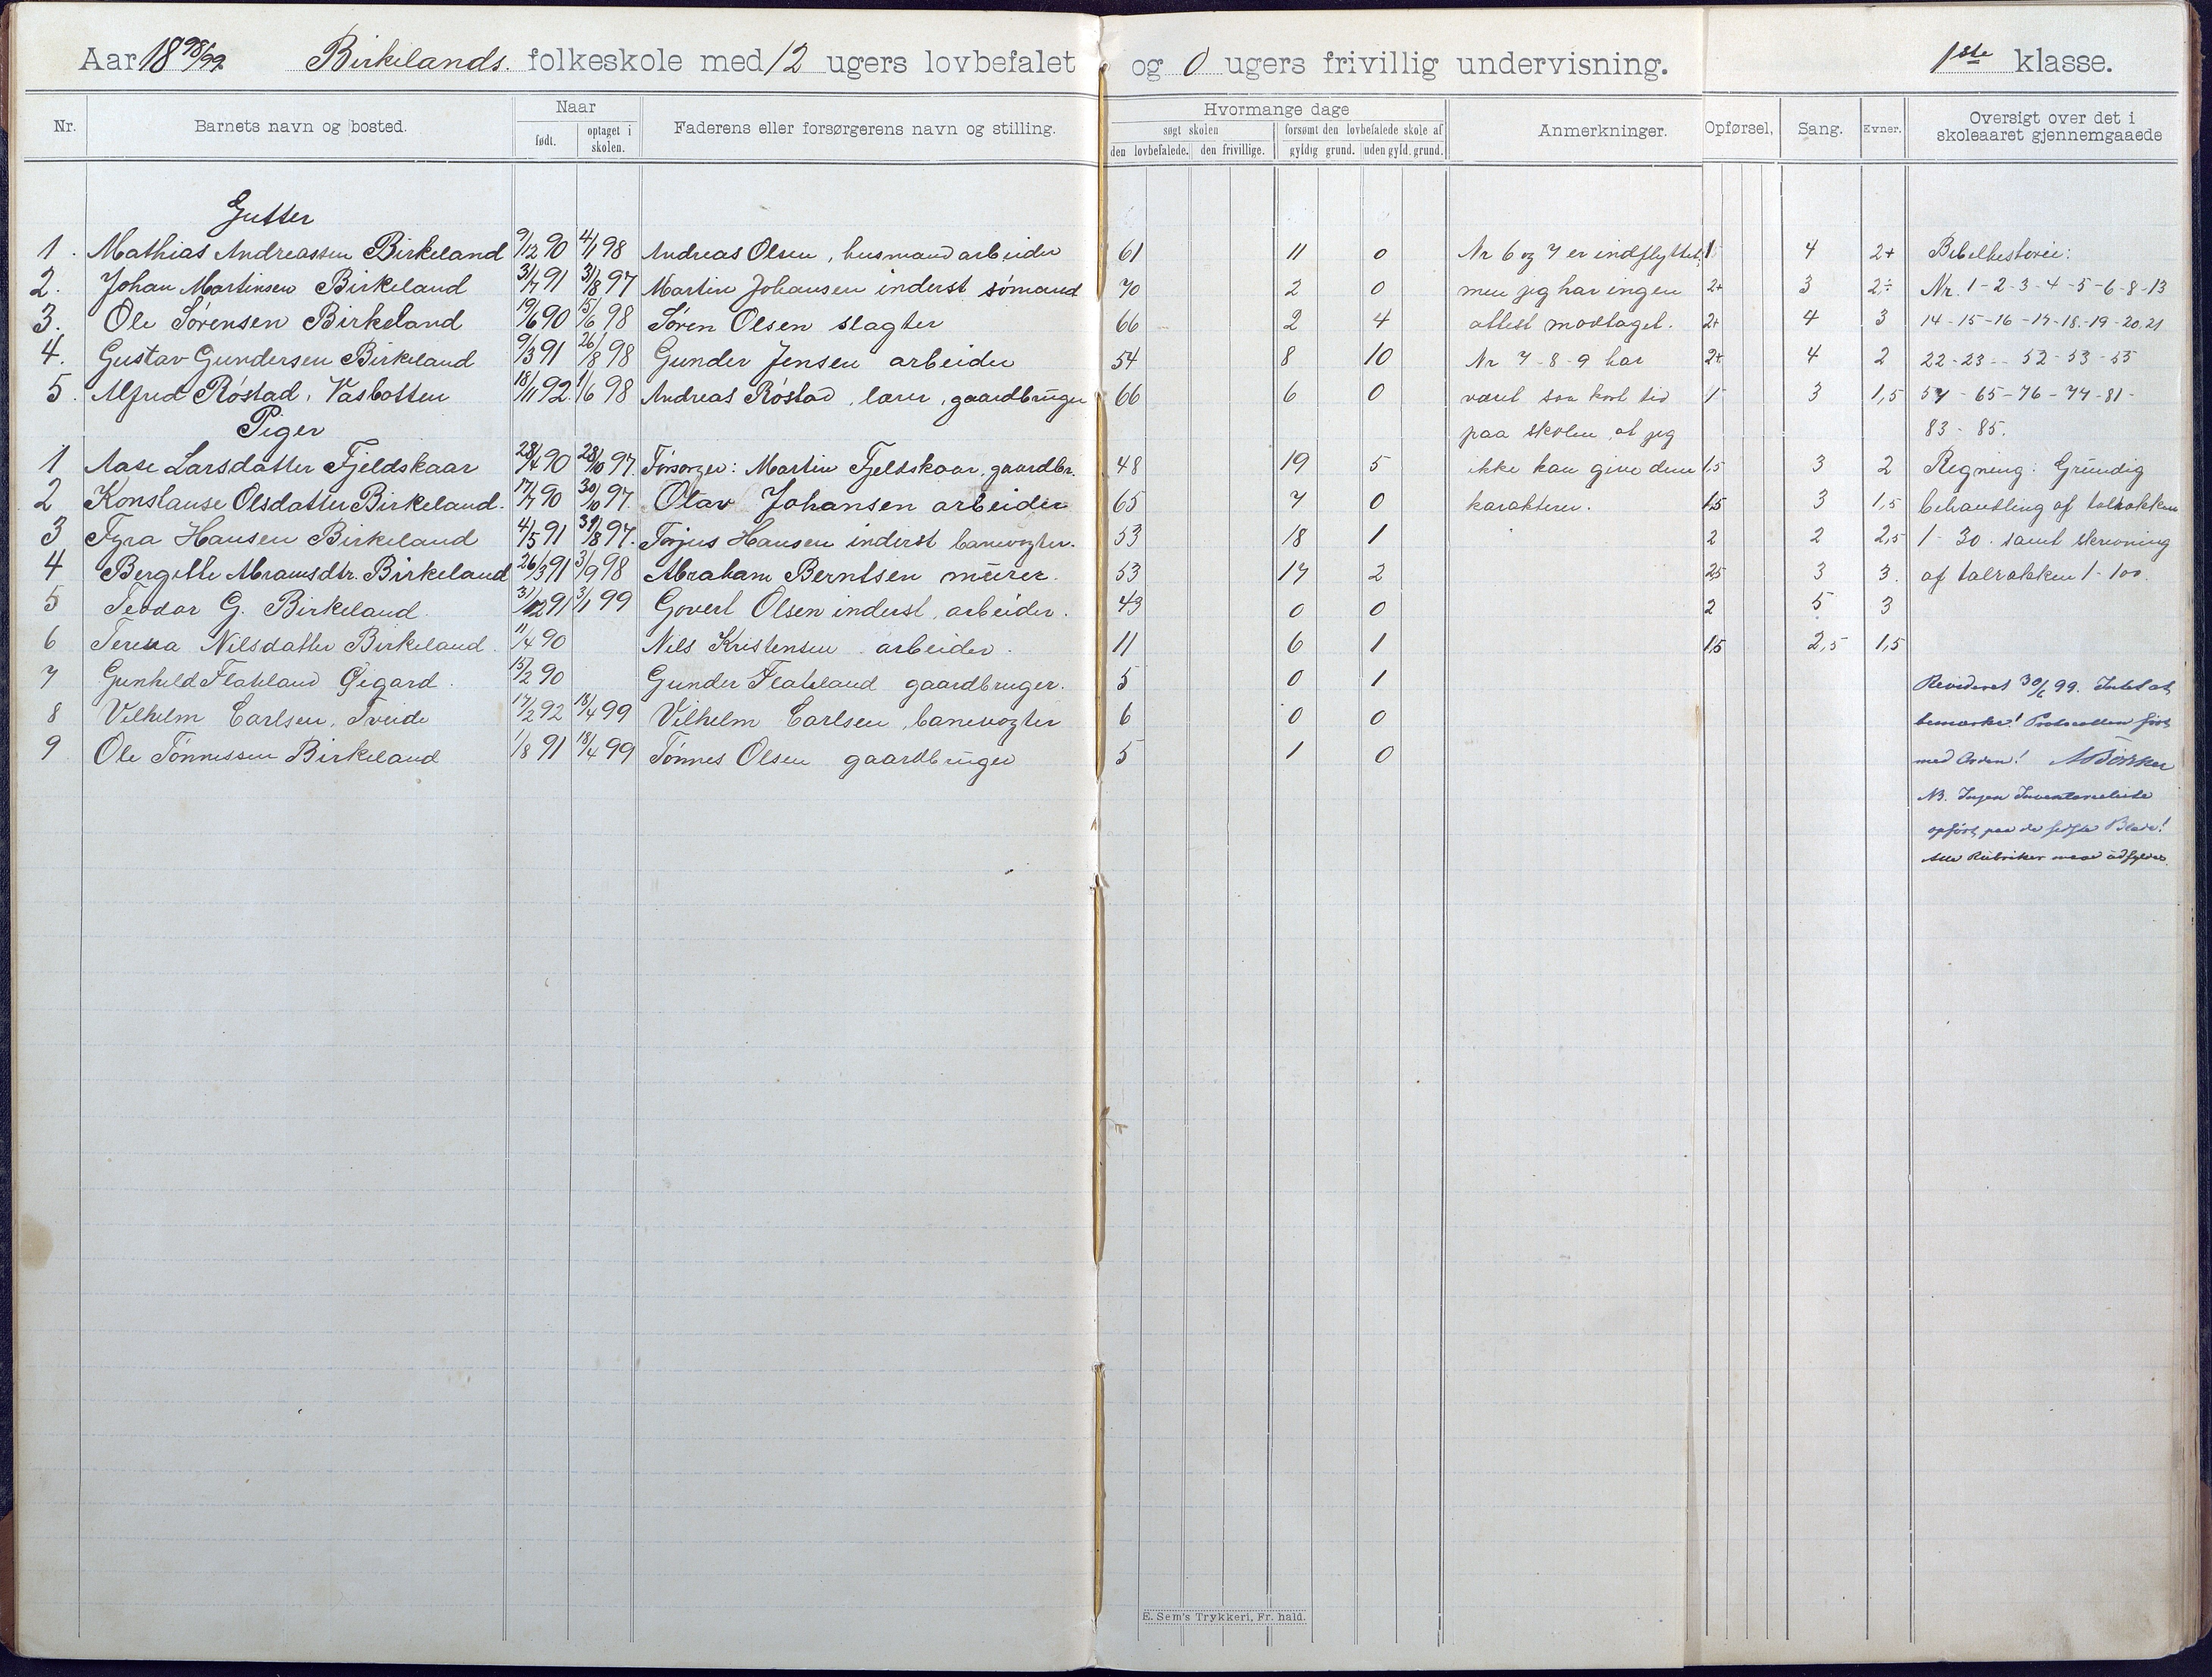 Aar 18 98/99 Birkelands. folkeskole med 12 ugers lovbefalet og 0 ugers frivillig undervisning. 1ste klasse.
Nr. Barnets navn og bosted. Naar født. optaget i skolen. Faderens eller forsørgerens navn og stilling. Hvormange dage søgt skolen den lovbefalede. den frivillige. forsømt den lovbefalede skole af gyldig grund. uden gyld. grund. Anmerkninger. Opførsel, Sang. Evner. Oversigt over det i skoleaaret gjennemgaaede
Gutter
1. Mathias Andreassen Birkeland 9/12 90 4/1 98 Andreas Olsen, husmand arbeider 61 11 0 Nr 6 og 7 er indflyttet, 1 4 2+ Bibelhistorie:
2. Johan Martinsen Birkeland 31/7 91 31/8 97 Martin Johansen inderst sømand 70 2 0 men jeg har ingen 2+ 3 2÷ Nr. 1-2-3-4-5-6-8-13
3. Ole Sørensen Birkeland 19/6 90 15/6 98 Søren Olsen slagter 66 2 4 attest modtaget. 2+ 4 3 14-15-16-17-18-19-20.21
4. Gustav Gundersen Birkeland 9/3 91 26/8 98 Gunder Jensen arbeider 54 8 10 Nr 7-8-9 har 2+ 4 2 22-23-- 52-53-55
5. Alfred Røstad, Vasbotten 18/11 92. 1/6 98 Andreas Røstad, lærer, gaardbruger 66 6 0 været saa kort tid 1 3 1,5 57-65-76-77-81-
Piger paa skolen, at jeg 83-85.
1 Aase Larsdatter Fjeldskaar 28/4 90 28/10 97. Forsørger: Martin Fjeldskaar, gaardbr. 48 19 5 ikke kan give dem 1,5 3 2 Regning: Grundig
2 Konstanse Olsdatter Birkeland. 17/7 90 30/10 97. Olav Johansen arbeider 65 7 0 karakterer. 1,5 3 1,5 behandling af talrækken
3 Fyra Hansen Birkeland 4/5 91 31/8 97. Torjus Hansen inderst banevogter. 53 18 1 2 2 2,5 1-30. samt skrivning
4 Bergitte Abramsdtr. Birkeland 26/3 91 3/9 98 Abraham Berntsen murer. 53 17 2 2,5 3 3. af talrækken 1-100.
5 Teodor G. Birkeland 31/12 91 3/1 99 Govert Olsen inderst, arbeider. 43 0 0 2 5 3
6 Teresa Nilsdatter Birkeland. 11/4 90 Nils Kristensen arbeider. 11 6 1 1,5 2,5 1,5
7 Gunhild Flateland Øigard. 15/2 90 Gunder Flateland gaardbruger. 5 0 1 Revideret 30/6 99. Intet at
8 Vilhelm Carlsen, Tveide 17/2 92 18/4 99 Vilhelm Carlsen, banevogter 6 0 0 bemærke! Protocollen ført
9 Ole Tønnessen Birkeland 1/8 91 18/4 99 Tønnes Olsen gaardbruger 5 1 0 med Orden!
NB. Ingen Inventarieliste
opført paa de sidste Blade!
Alle Rubriker maa udfyldes.
E. Sem's Trykkeri, Fr. hald.